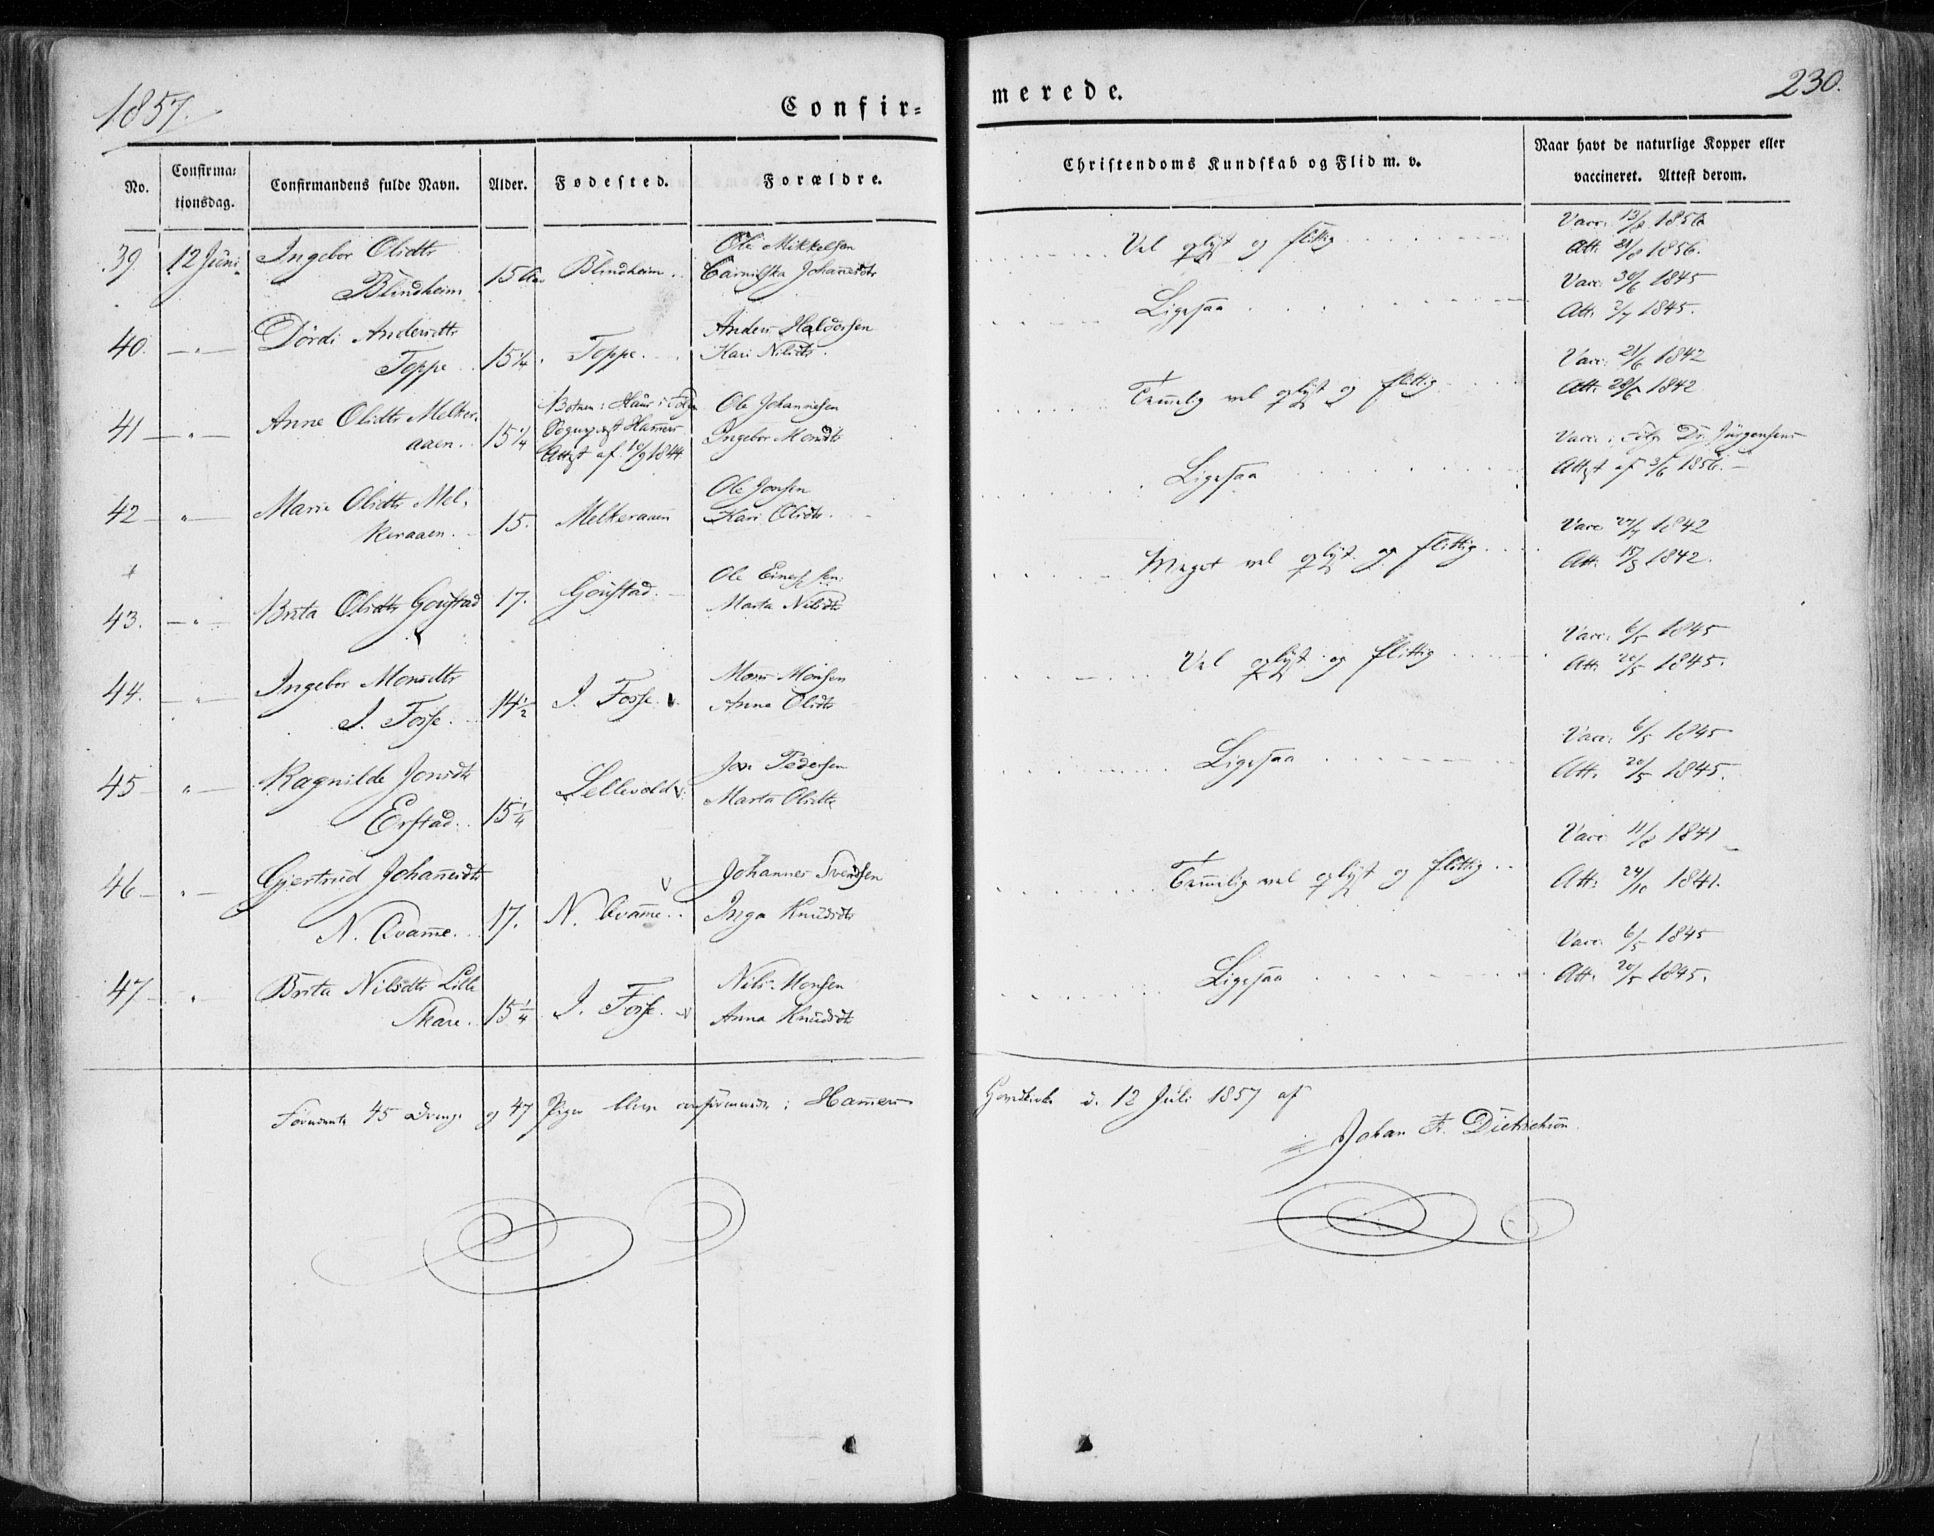 1857.
Confir=
merede.
230.
No.
Confirma=
tionsdag.
Confirmandens fulde Navn.
Alder.
Fødested.
Forældre.
Christendoms Kundskab og Flid m. v.
Naar havt de naturlige Kopper eller
vaccineret. Attest derom.
39 12 Juni Ingebor Olsdtr
Blindheim 15 Blindheim
Ole Mikkelsen
Johannesdtr
Vel oplyst og flittig
Vacc. 1856
Att. 1856.
40. Dördi Andersdtr
Toppe 15 1/4 Toppe.
Anders Haldorsen
Kari Nilsdtr.
Ligesaa
Vacc. 30/6 1845
Att. 2/7 1845.
41 Anne Olsdtr Melker-
aaen. 15 1/4
Botnen i Haus
Sognepræst Hammer
Attest af 10/9 1844.
Ole Johannesen
Ingebor Monsdtr
Temmelig vel oplyst og flittig
Vacc. 21/6 1842
Att. 28/6 1842
42 Marie Olsdtr Mel-
keraaen. 15. Melkeraaen
Ole Jonsen
Kari Olsdtr.
Ligesaa
Vacc. Dr. Jürgensens
Attest af 3/6 1856.
43. Brita Olsdtr Goustad 17. Goustad.
Ole Einersen
Marta Nilsdtr
Meget vel oplyst og flittig
Vacc. 1842
Att. 15/8 1842.
44. Ingebor Monsdtr
I. Fosse. 14 1/2 I. Fosse
Mons Monsen
Anna Olsdtr
Vel oplyst og flittig
Vacc. 6/5 1845
Att. 20/5 1845.
45 Ragnilde Jonsdtr
Erstad. 15 1/4 Lellevold
Jon Pedersen
Marta Olsdtr
Ligesaa
Vacc. 6/5 1845
Att. 20/5 1845.
46 Gjertrud Johannesdtr
N. Qvamme. 17. N. Qvamme.
Johannes Svendsen
Inga Knudsdtr
Temmelig vel oplyst og flittig
Vacc. 11/8 1841
Att. 24/10 1841.
47 Brita Nilsdtr Lille
Skare. 15 1/4 I. Fosse.
Nils Monsen
Anna Knudsdtr
Ligesaa
Vacc. 6/5 1845
Att. 20/5 1845.
Førnævnte 45 Drenge og 47 Piger bleve confirmerede i Hammers
Hovedkirke d. 12 Juli 1857 af
Johan F. Dietrichson